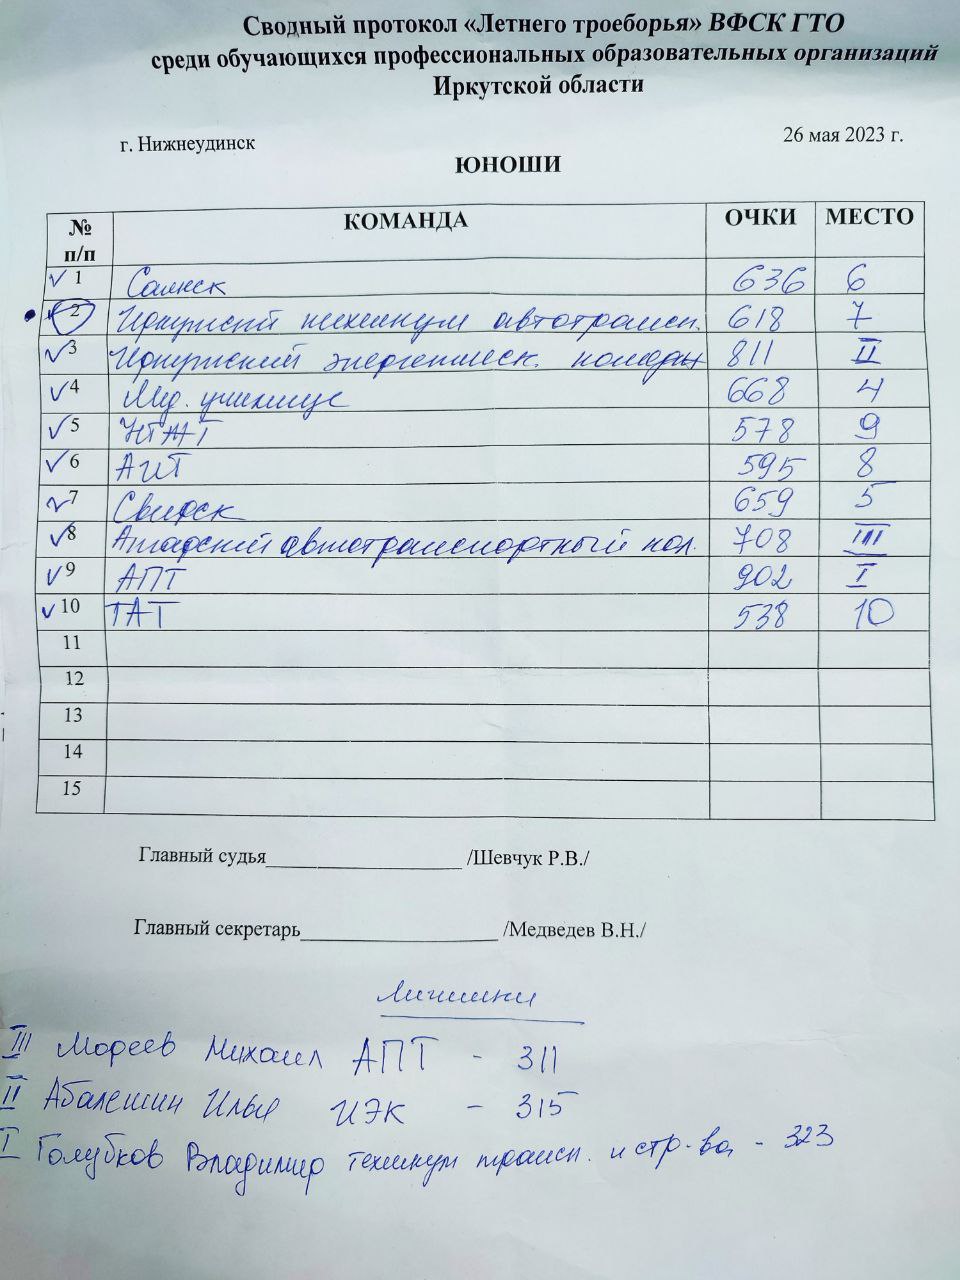 Сводный протокол «Летнего троеборья» ВФСК ГТО
среди обучающихся профессиональных образовательных организаций
Иркутской области
г. Нижнеудинск 26 мая 2023 г.
ЮНОШИ
№ п/п КОМАНДА ОЧКИ МЕСТО
1 Саянск 636 6
2 Иркутский техникум автотрансп. 618 7
3 Иркутский энергетическ. колледж 811 II
4 Мед. училище 668 4
5 578 9
6 595 8
7 Свирск 659 5
8 Ангарский автотранспортный кол. 708 III
9 АПТ 902 I
10 ТАТ 538 10
11
12
13
14
15
Главный судья /Шевчук Р.В./
Главный секретарь /Медведев В.Н./
Личники
III Мореев Михаил АПТ - 311
II Абалешин Илья ИЭК - 315
I Голубков Владимир техникум трансп. и стр-ва - 323